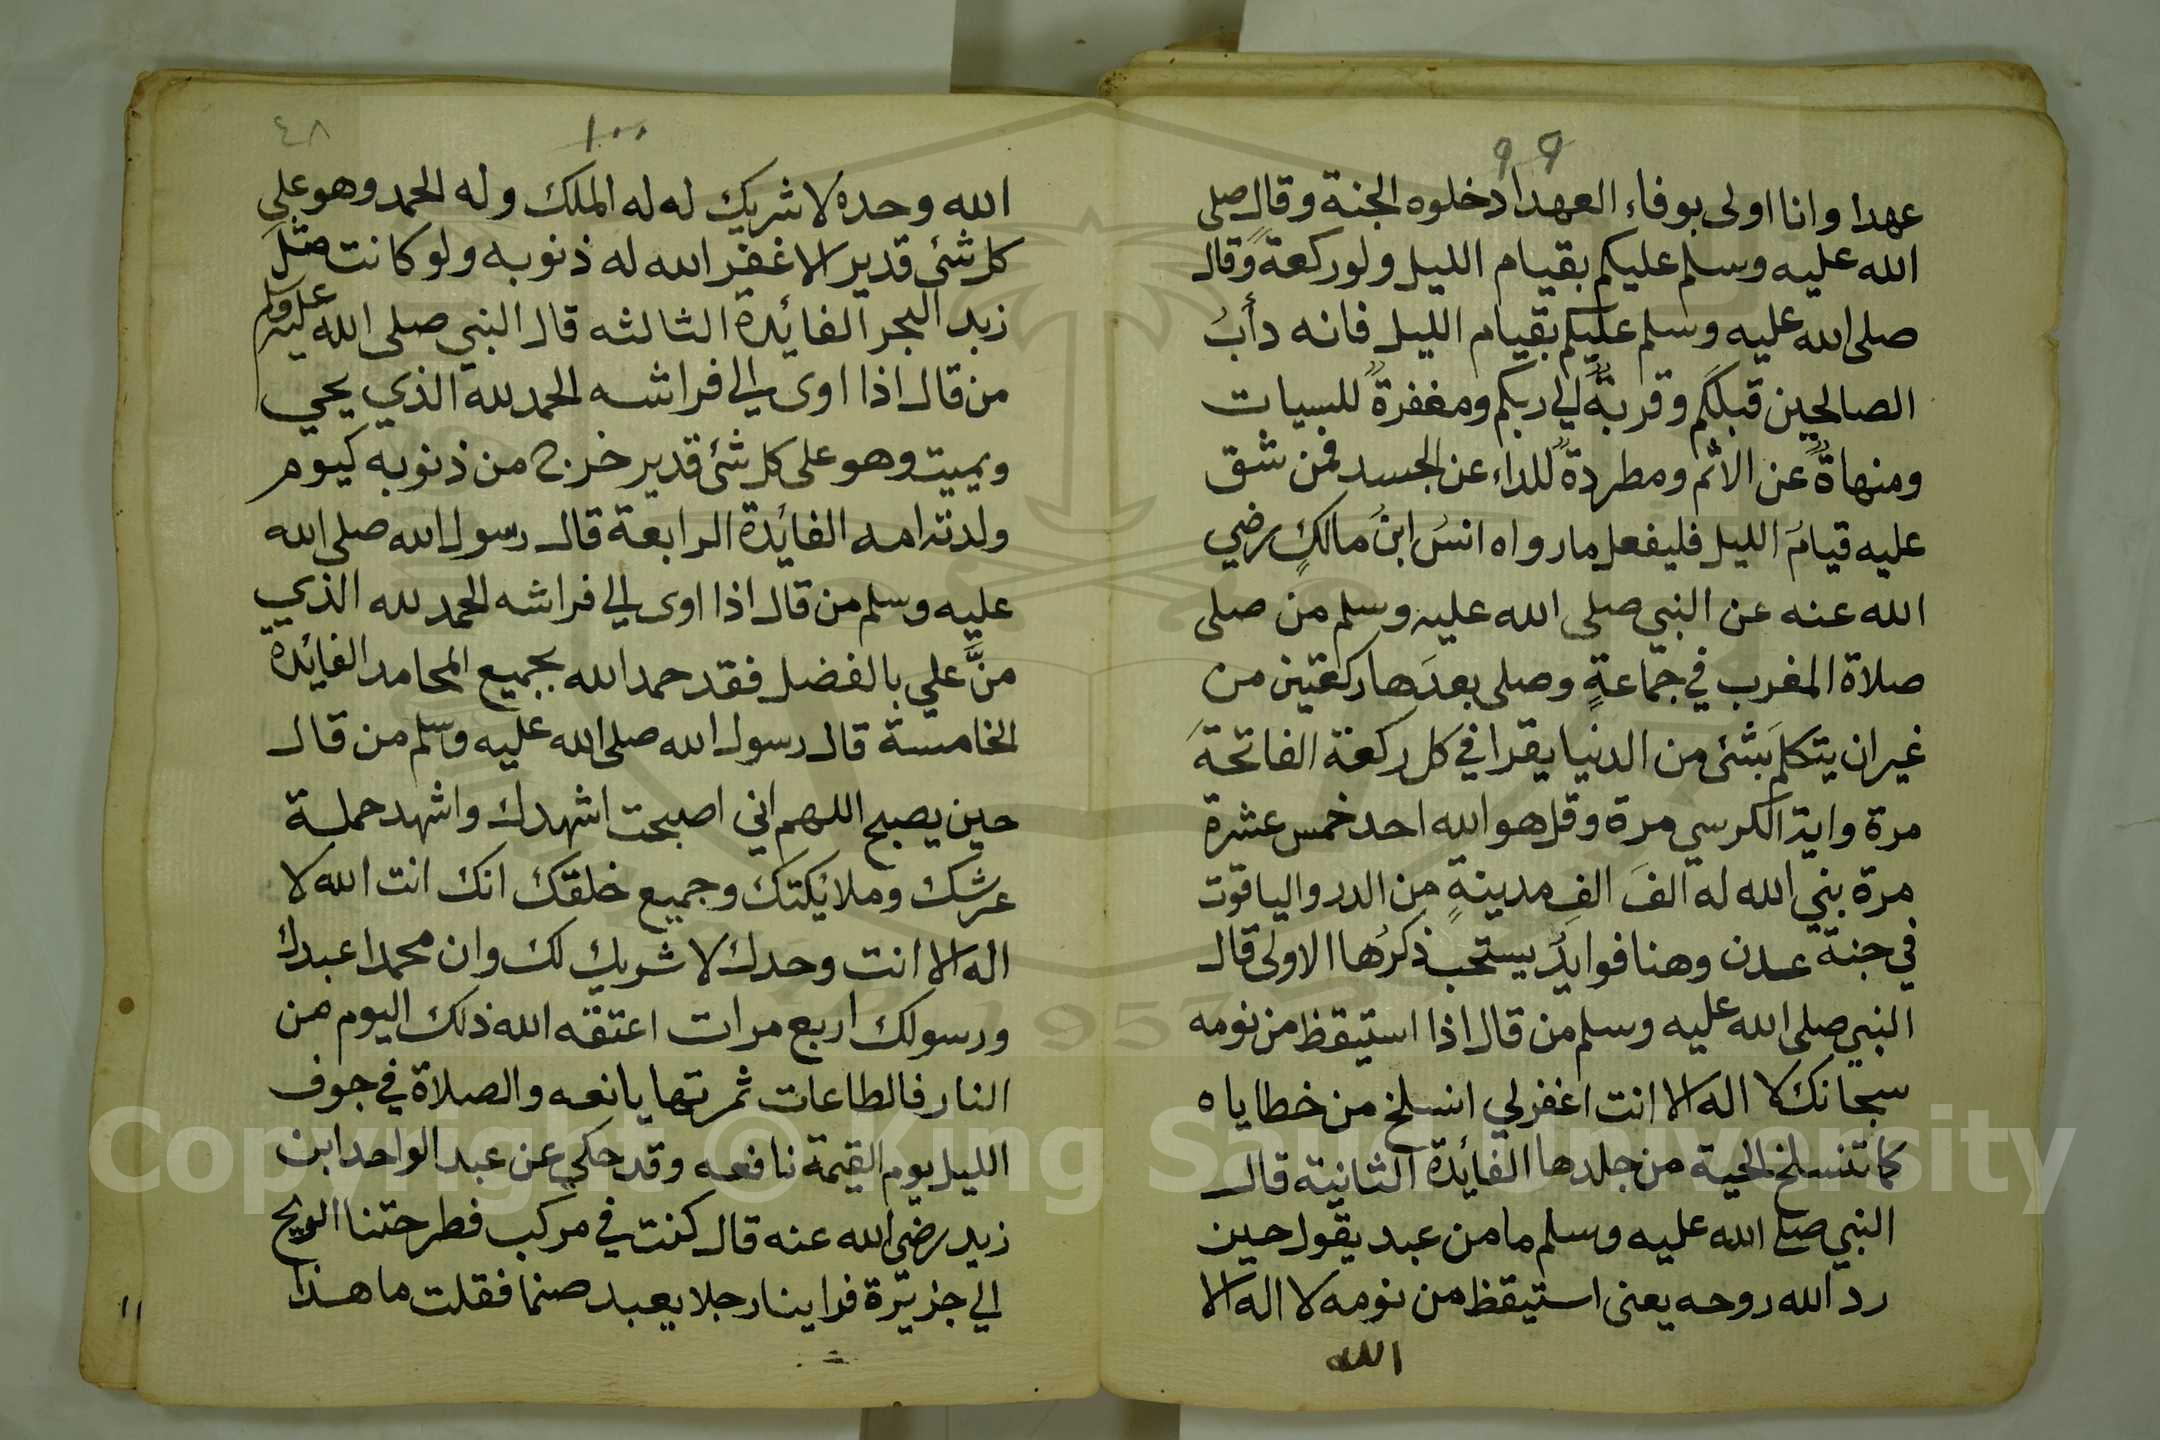 99
عهدا وانا اولى بوفاء العهد ادخلوه الجنة وقال صلى
الله عليه وسلم عليكم بقيام الليل ولو ركعةً وقال
صلى الله عليه وسلم عليكم بقيام الليل فانه دأبُ
الصالحين قبلكم وقربةٌ الي ربكم ومغفرةٌ للسيات
ومنهاةٌ عن الاثم ومطردةٌ للداء عن الجسد فمن شق
عليه قيامُ الليل فليفعل ما رواه انسُ ابنُ مالكٍ رضي
الله عنه عن النبي صلى الله عليه وسلم من صلى
صلاة المغرب في جماعةٍ وصلى بعدَها ركعتين من
غير ان يتكلم بشئ من الدنيا يقرا في كل ركعة الفاتحةَ
مرة واية الكرسي مرة وقل هو الله احد خمس عشرة
مرة بني الله له الفَ الفِ مدينةٍ من الدر والياقوت
في جنة عدن وهنا فوايدُ يستحب ذكرُها الاولى قال
النبي صلى الله عليه وسلم من قال اذا استيقظ من نومه
سبحانك لا اله الا انت اغفر لي انسلخ من خطاياه
كما تنسلخ الحية من جلدها الفائدة الثانية قال
النبي صلى الله عليه وسلم ما من عبد يقول حين
رد الله روحه يعنى استيقظ من نومه لا اله الا
الله
١٠٠
٤٨
الله وحده لا شريك له له الملك وله الحمد وهو علي
كل شئ قدير الا غفر الله له ذنوبه ولو كانت مثلَ
زبد البحر الفائدة الثالثه قال النبي صلى الله عليه وسلم
من قال اذا اوى الي فراشه الحمد لله الذي يحي
ويميت وهو على كل شئ قدير خرج من ذنوبه كيوم
ولدته امه الفائدة الرابعة قال رسول الله صلى الله
عليه وسلم من قال اذا اوى الي فراشه الحمد لله الذي
منَّ علي بالفضل فقد حمد الله بجميع المحامد الفائدة
الخامسة قال رسول الله صلى الله عليه وسلم من قال
حين يصبح اللهم اني اصبحت اشهدك واشهد حملة
عرشك وملائكتك وجميع خلقك انك انت الله لا
اله الا انت وحدك لا شريك لك وان محمدا عبدك
ورسولك اربع مرات اعتقه الله ذلك اليوم من
النار فالطاعات ثمرتها يانعه والصلاة في جوف
الليل يوم القيمة نافعه وقد حكي عن عبد الواحد ابن
زيد رضى الله عنه قال كنت في مركب فطرحتنا الريح
الي جزيرة فراينا رجلا يعبد صنما فقلت ما هذا
1957
Copyright © King Saud University